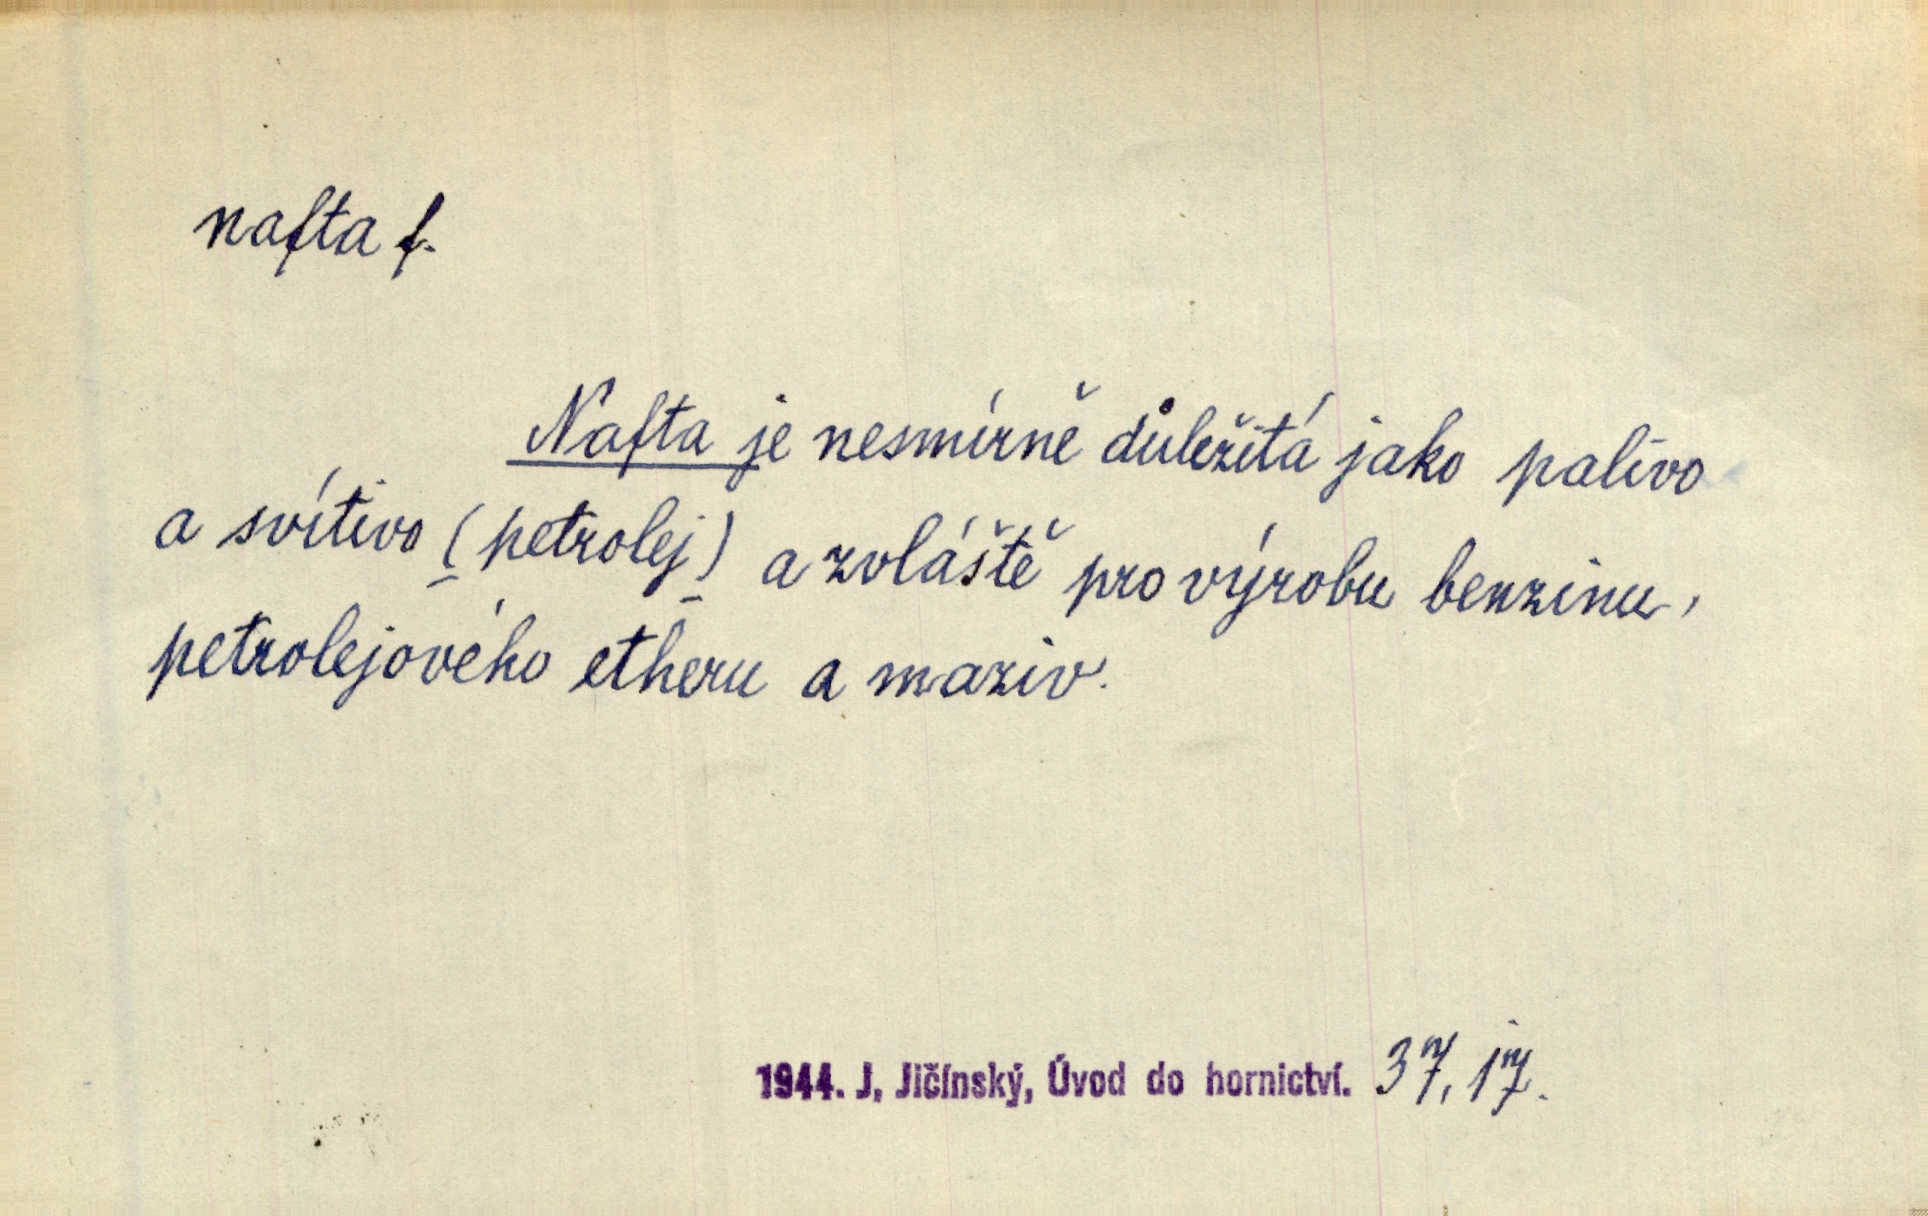 nafta f.
Nafta je nesmírně důležitá jako palivo
a svítivo (petrolej) a zvláště pro výrobu benzinu,
petrolejového etheru a maziv.
1944. J. Jičínský, Úvod do hornictví. 37, 17.